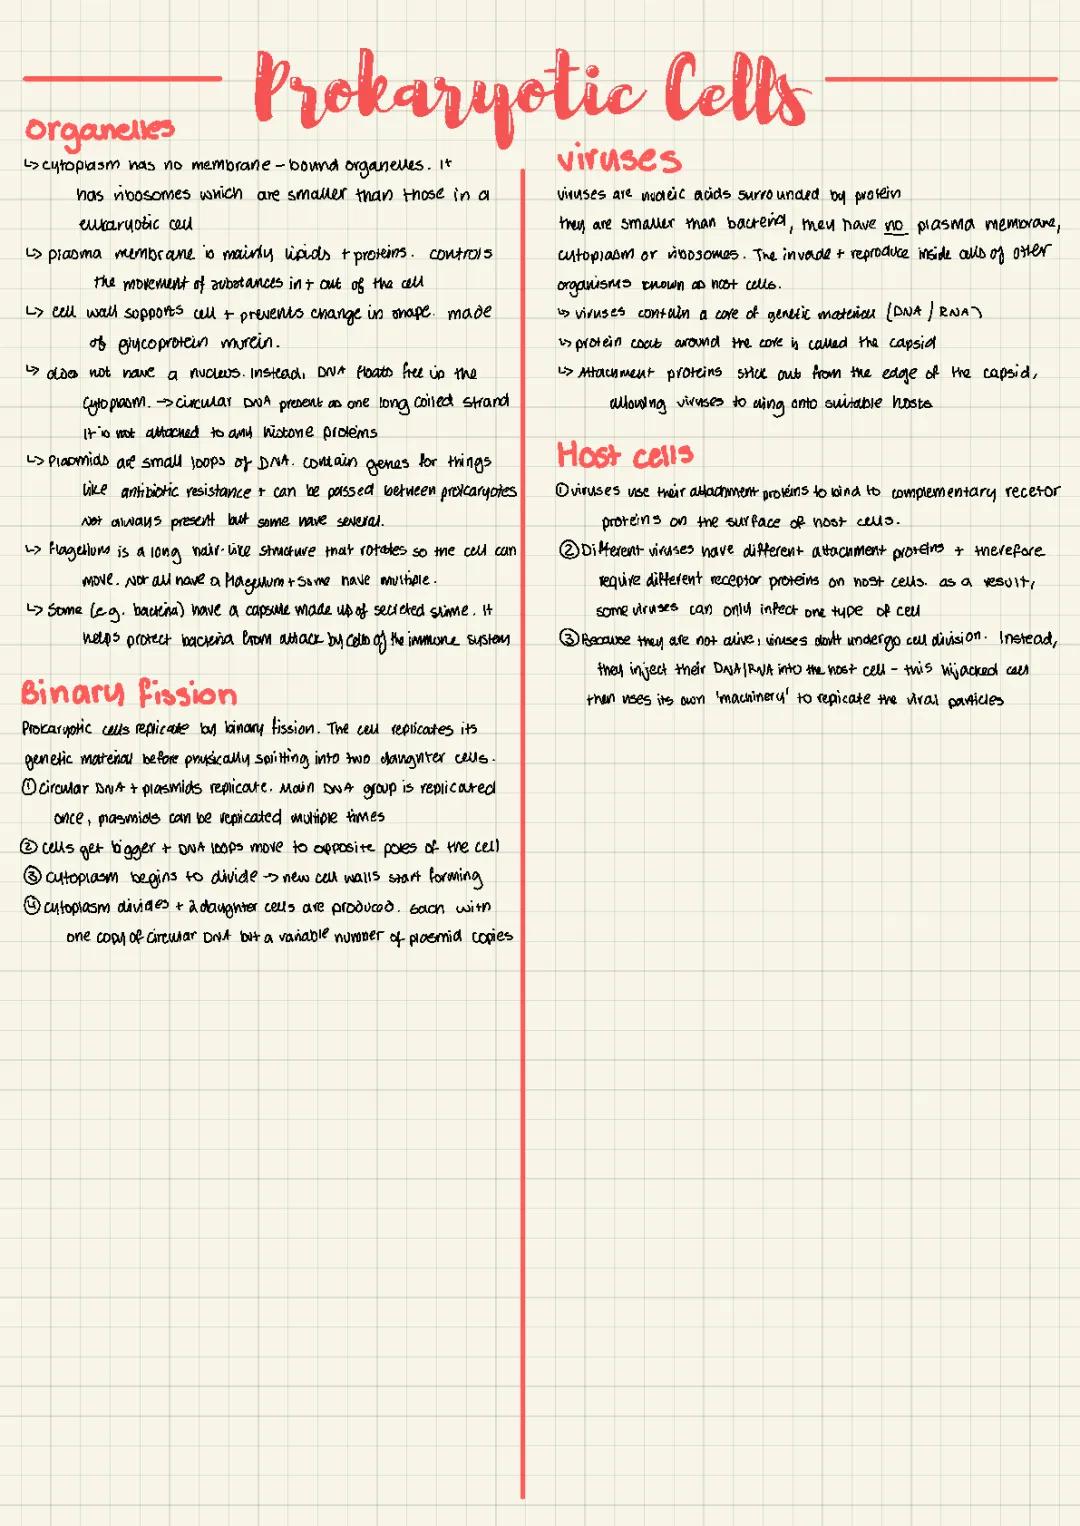 Prokaryotic Cells
Organelles
↳ cytoplasm has no membrane-bound organelles. It
has ribosomes which are smaller than those in a
eukaryotic cell
↳ plasma membrane is mainly lipids + proteins. controls
the movement of substances in + out of the cell
↳ cell wall supports cell + prevents change in shape. made
of glycoprotein murein.
↳ does not have a nucleus. Instead, DNA floats free in the
cytoplasm. → circular DNA present as one long coiled strand
It is not attached to any histone proteins
↳ Plasmids are small loops of DNA. contain genes for things
like antibiotic resistance + can be passed between prokaryotes
Not always present but some have several.
↳ flagellum is a long hair-like structure that rotates so the cell can
move. Not all have a flagellum + some have multiple.
↳ Some (e.g. bacteria) have a capsule made up of secreted slime. It
helps protect bacteria from attack by cells of the immune system
Binary fission
Prokaryotic cells replicate by binary fission. The cell replicates its
genetic material before physically splitting into two daughter cells.
① circular DNA + plasmids replicate. Main DNA group is replicated
once, plasmids can be replicated multiple times
② cells get bigger + DNA loops move to opposite poles of the cell
③ cytoplasm begins to divide → new cell walls start forming
④ cytoplasm divides + 2 daughter cells are produced. Each with
one copy of circular DNA but a variable number of plasmid copies
viruses
viruses are nucleic acids surrounded by protein
they are smaller than bacteria, they have no plasma membrane,
cytoplasm or ribosomes. The invade + reproduce inside cells of other
organisms known as host cells.
↳ viruses contain a core of genetic material (DNA / RNA)
↳ protein coat around the core is called the capsid
↳ Attachment proteins stick out from the edge of the capsid,
allowing viruses to cling onto suitable hosts
Host cells
① viruses use their attachment proteins to bind to complementary recetor
proteins on the surface of host cells.
② Different viruses have different attachment proteins + therefore
require different receptor proteins on host cells. as a result,
some viruses can only infect one type of cell
③ Because they are not alive, viruses don't undergo cell division. Instead,
they inject their DNA/RNA into the host cell - this hijacked cell
then uses its own 'machinery' to replicate the viral particles